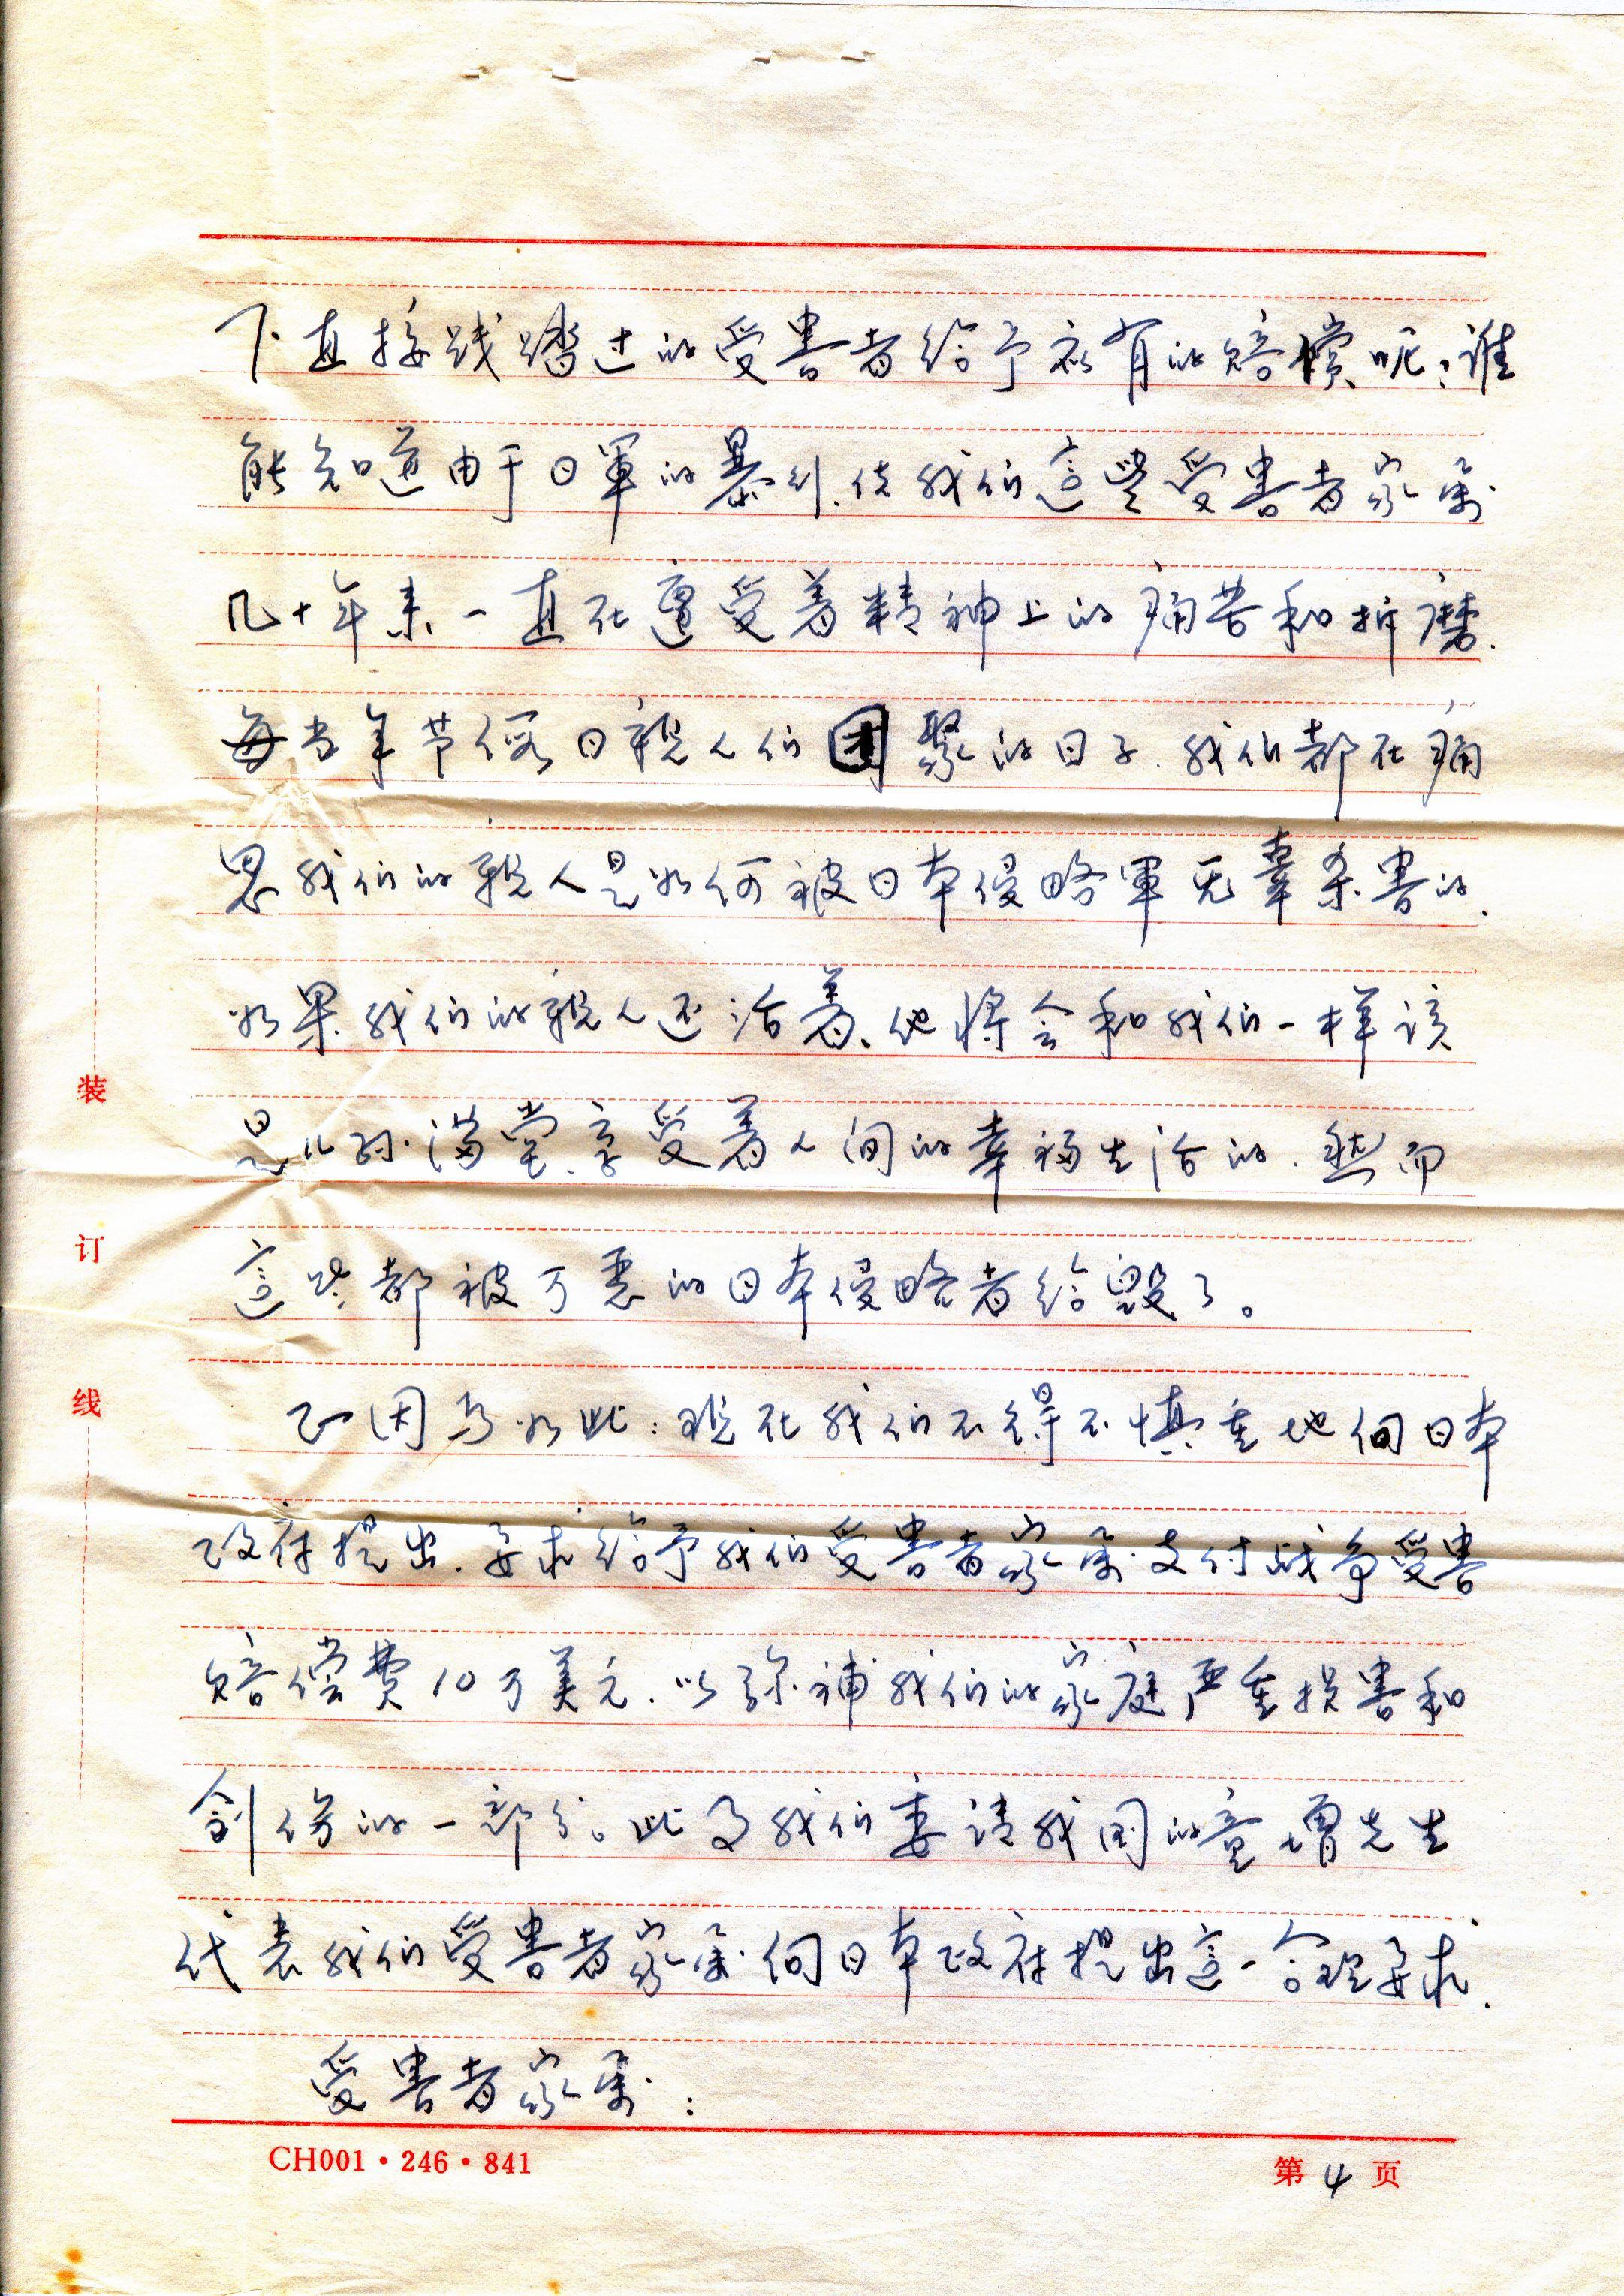 下直接践踏过的受害者给予应有的赔偿呢?谁
能知道由于日軍的暴行.使我们这些受害者家属
几十年来一直在遭受着精神上的痛苦和折磨.
每当年节假日親人们团聚的日子.我们都在痛
思我们的親人是如何被日本侵略軍无辜杀害的.
如果我们的親人还活着、他将会和我们一样该
是儿孙满堂、享受着人间的幸福生活的.然而
这些都被可恶的日本侵略者给毁了。
正因为如此:现在我们不得不慎重地向日本
政府提出.要求给予我们受害者家属支付战争受害
赔偿費10万美元.以弥補我们的家庭严重损害和
创伤的一部分。此了我们委请我国的童增先生
代表我们受害者家属向日本政府提出这一合理要求.
受害者家属:
装
订
线
CH001·246·841
第4页